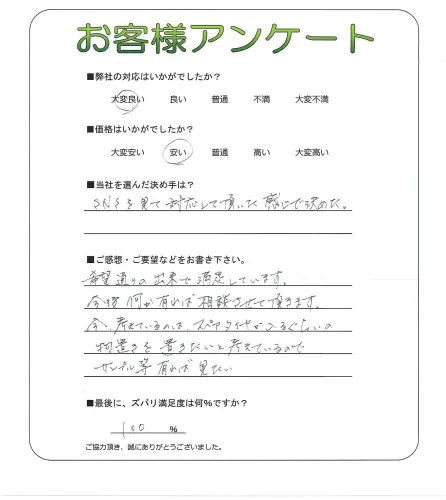 お客様アンケート
■弊社の対応はいかがでしたか？
大変良い 良い 普通 不満 大変不満
■価格はいかがでしたか？
大変安い 安い 普通 高い 大変高い
■当社を選んだ決め手は？
SNSを見て対応して頂いた感じで決めた。
■ご感想・ご要望などをお書き下さい。
希望通りの出来で満足しています。
今後何か有れば相談させて頂きます。
今、考えているのは、スペアタイヤが入るぐらいの
物置きを置きたいと考えているので
サンプル等有れば見たい
■最後に、ズバリ満足度は何%ですか？
100 %
ご協力頂き、誠にありがとうございました。